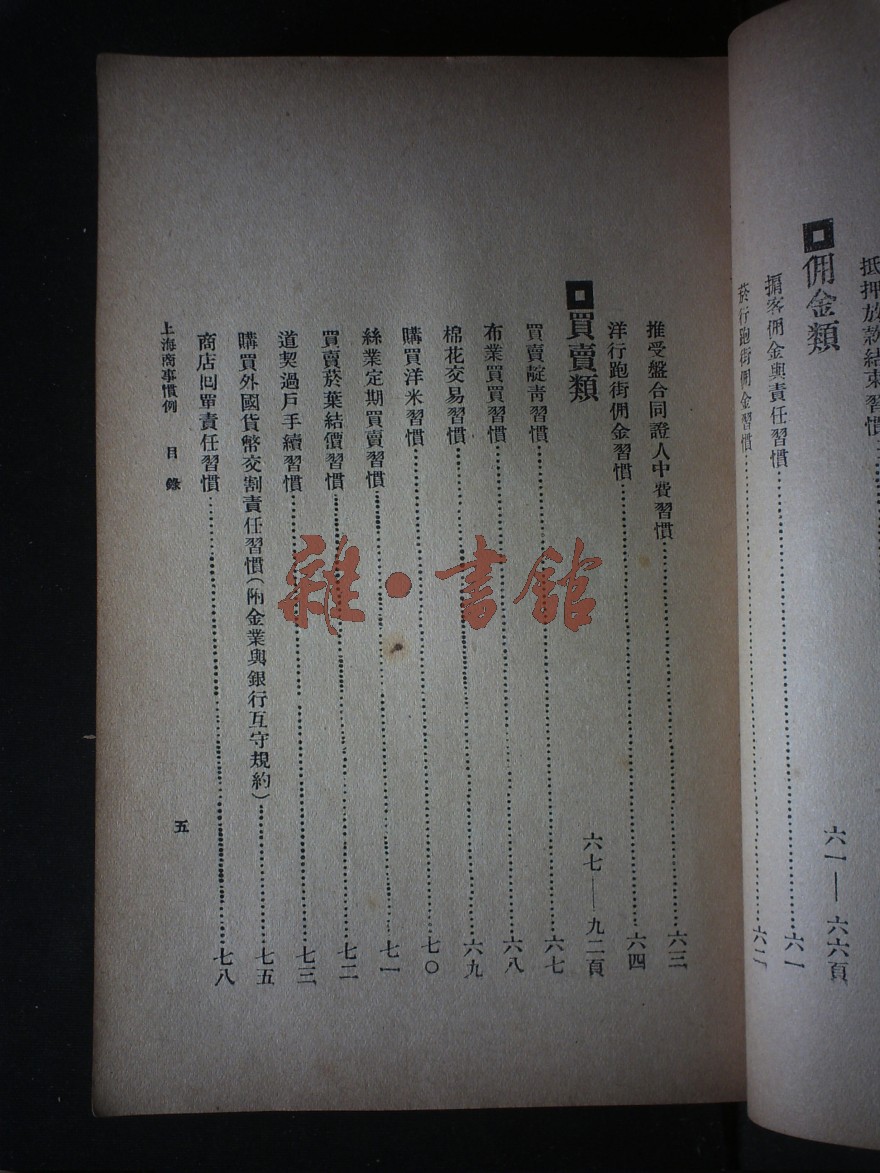 抵押放款結束習慣
佣金類 六一—六六頁
掮客佣金與責任習慣 六一
菸行跑街佣金習慣 六二
推受盤合同證人中費習慣 六三
洋行跑街佣金習慣 六四
買賣類 六七—九二頁
買賣靛青習慣 六七
布業買買習慣 六八
棉花交易習慣 六九
購買洋米習慣 七〇
絲業定期買賣習慣 七一
買賣菸葉結價習慣 七二
道契過戶手續習慣 七三
購買外國貨幣交割責任習慣(附金業與銀行互守規約) 七五
商店回單責任習慣 七八
上海商事慣例 目錄 五
雜·書館